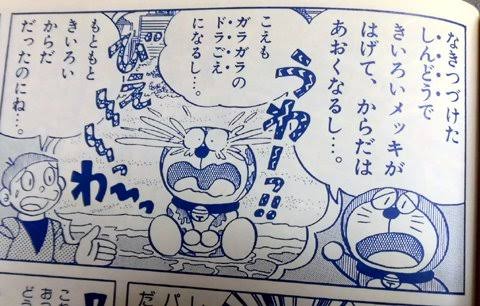 なきつづけた
しんどうで
きいろいメッキが
はげて、からだは
あおくなるし…。
こえも
ガラガラの
ドラごえ
になるし…。
うわーっ!!
わ〜〜っ
もともと
きいろい
からだ
だったのにね…。